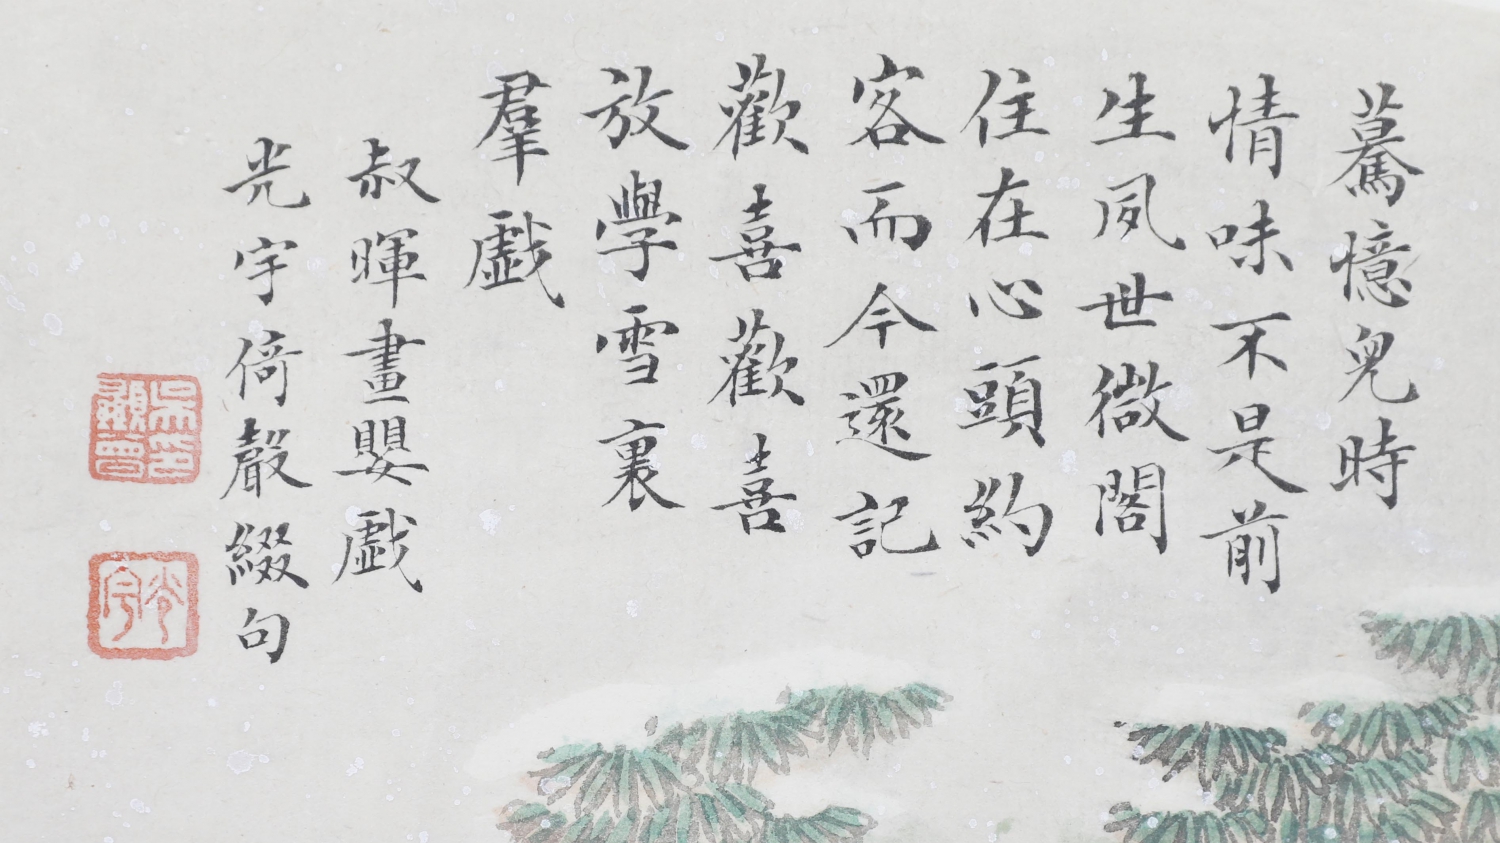 驀憶兒時
情味不是前
生夙世微閣
住在心頭約
客而今還記
歡喜歡喜
放學雪裏
羣戯
叔暉畫嬰戯
光宇倚聲綴句
吳印顯曾
光宇